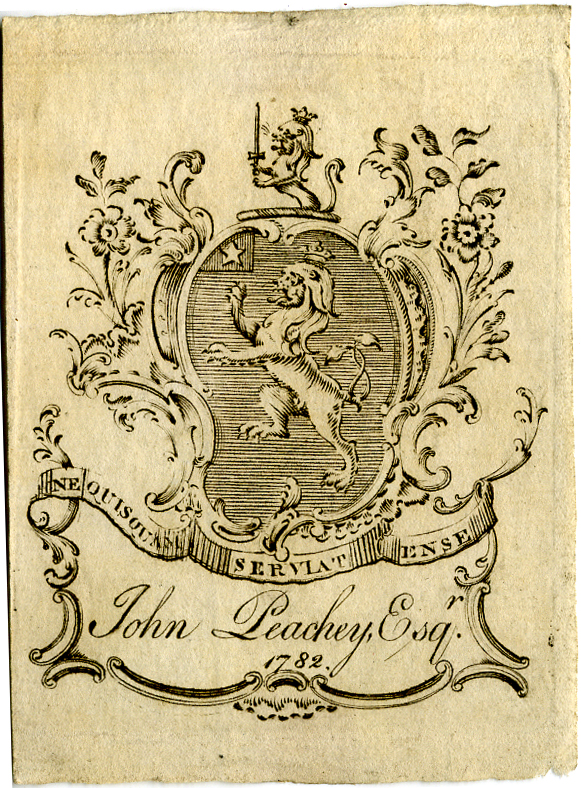 NE QUISQUAM SERVIAT ENSE
John Peachey, Esqr.
1782.